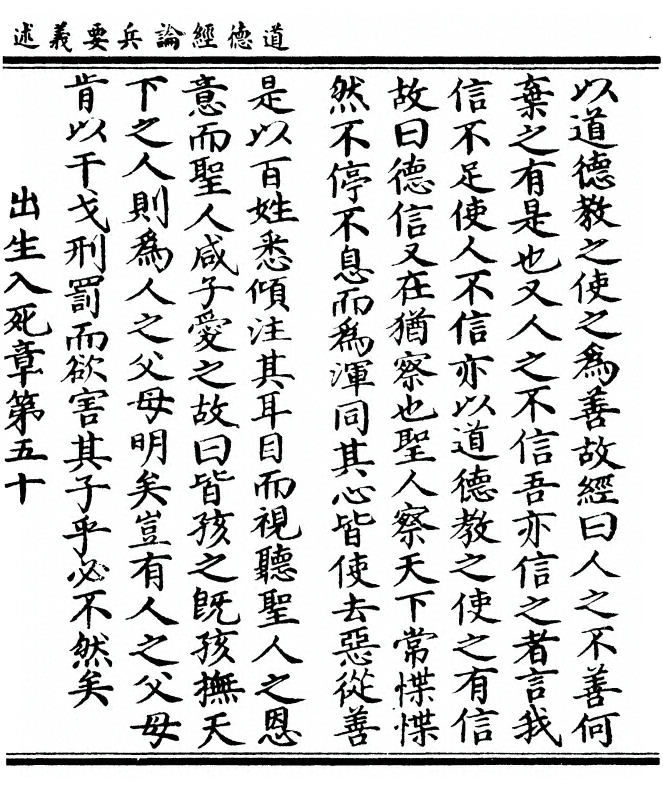 道德經論兵要義述
以道德教之使之為善故經曰人之不善何
棄之有是也又人之不信吾亦信之者言我
信不足使人不信亦以道德教之使之有信
故曰德信又在猶察也聖人察天下常惵惵
然不停不息而為渾同其心皆使去惡從善
是以百姓悉傾注其耳目而視聽聖人之恩
意而聖人咸子愛之故曰皆孩之既孩撫天
下之人則為人之父母明矣豈有人之父母
肯以干戈刑罰而欲害其子乎必不然矣
出生入死章第五十